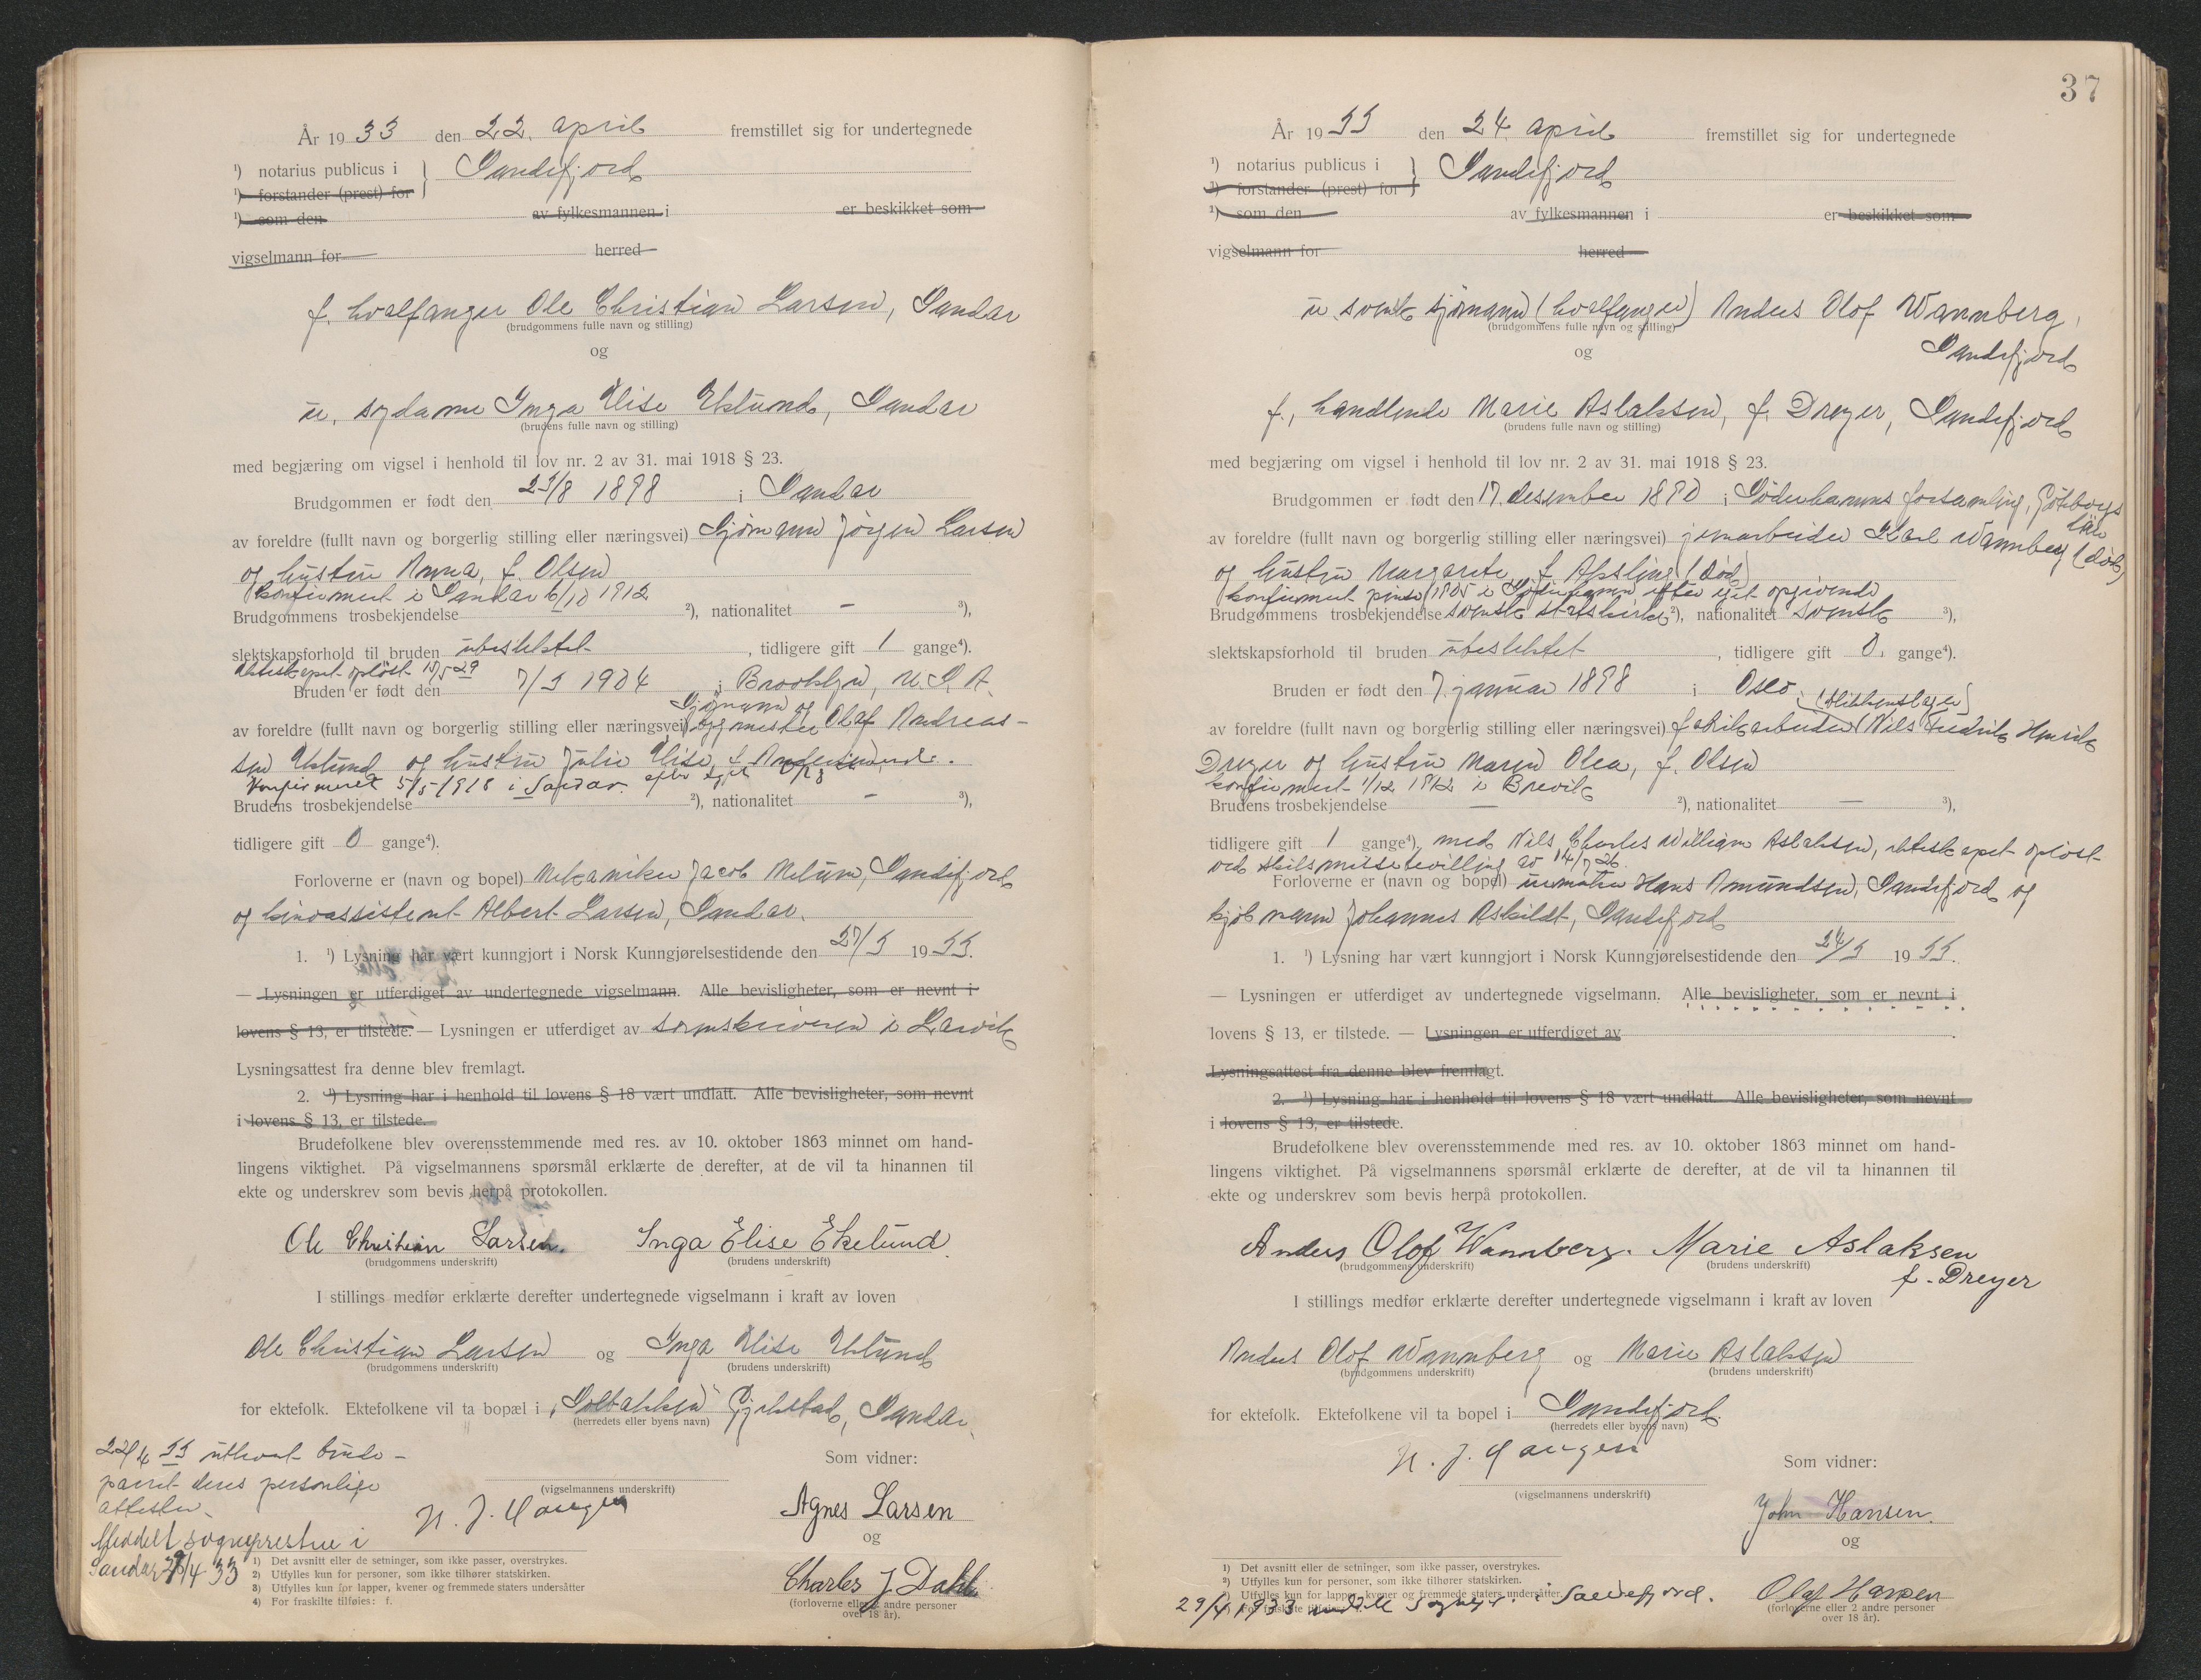 År 1933 den 22. april fremstillet sig for undertegnede
¹) notarius publicus i } Sandefjord
¹) forstander (prest) for
¹) som den av fylkesmannen i er beskikket som
vigselmann for herred
f. hvalfanger Ole Christian Larsen, Sandar
(brudgommens fulle navn og stilling)
og
u. sydame Inga Elise Eklund, Sandar
(brudens fulle navn og stilling)
med begjæring om vigsel i henhold til lov nr. 2 av 31. mai 1918 § 23.
Brudgommen er født den 23/8 1898 i Sandar
av foreldre (fullt navn og borgerlig stilling eller næringsvei) Sjømann Jørgen Larsen
og hustru Anna, f. Olsen
konfirmert i Sandar 6/10 1912
Brudgommens trosbekjendelse ²), nationalitet — ³),
slektskapsforhold til bruden ubeslektet, tidligere gift 1 gange⁴).
ekteskapet opløst 15/5 29
Bruden er født den 7/3 1904 i Brooklyn, U.S.A.
Sjømann og
av foreldre (fullt navn og borgerlig stilling eller næringsvei) Olaf Andreas-
sen Eklund og hustru Julie Elise, f.
Konfirmeret 5/5-1918 i Sandar.
Brudens trosbekjendelse ²), nationalitet — ³),
tidligere gift 0 gange⁴).
Forloverne er (navn og bopel) Mekaniker Jacob Melum, Sandefjord
og kinoassistent Albert Larsen, Sandar.
1. ¹) Lysning har vært kunngjort i Norsk Kunngjørelsestidende den 27/3 1933.
— Lysningen er utferdiget av undertegnede vigselmann. Alle bevisligheter, som er nevnt i
lovens § 13, er tilstede. — Lysningen er utferdiget av sorenskriveren i Larvik
Lysningsattest fra denne blev fremlagt.
2. ¹) Lysning har i henhold til lovens § 18 vært undlatt. Alle bevisligheter, som nevnt
i lovens § 13, er tilstede.
Brudefolkene blev overensstemmende med res. av 10. oktober 1863 minnet om hand-
lingens viktighet. På vigselmannens spørsmål erklærte de derefter, at de vil ta hinannen til
ekte og underskrev som bevis herpå protokollen.
Ole Christian Larsen. Inga Elise Ekelund.
(brudgommens underskrift) (brudens underskrift)
I stillings medfør erklærte derefter undertegnede vigselmann i kraft av loven
Ole Christian Larsen og Inga Elise Eklund
(brudgommens underskrift) (brudens underskrift)
for ektefolk. Ektefolkene vil ta bopæl i „Solbakken" Gjekstad, Sandar.
(herredets eller byens navn)
22/4 33 uthevet brude-
parret deres personlige
attester.
Som vidner:
(vigselmannens underskrift)
Agnes Larsen
og
Meddelt sognepresten i
Sandar 29/4 33
Charles J. Dahl
(forloverne eller 2 andre personer
over 18 år).
1) Det avsnitt eller de setninger, som ikke passer, overstrykes.
2) Utfylles kun for personer, som ikke tilhører statskirken.
3) Utfylles kun for lapper, kvener og fremmede staters undersåtter
4) For fraskilte tilføies: f.
37
År 1933 den 24. april fremstillet sig for undertegnede
¹) notarius publicus i } Sandefjord
¹) forstander (prest) for
¹) som den av fylkesmannen i er beskikket som
vigselmann for herred
u svensk sjømann (hvalfanger) Anders Olof Wannberg,
(brudgommens fulle navn og stilling)
og Sandefjord
f., handlende Marie Aslaksen, f. Dreyer, Sandefjord
(brudens fulle navn og stilling)
med begjæring om vigsel i henhold til lov nr. 2 av 31. mai 1918 § 23.
Brudgommen er født den 17. desember 1890 i Söderhamns forsamling, Göteborgs
län
av foreldre (fullt navn og borgerlig stilling eller næringsvei) jernarbeider Karl Wannberg (død)
og hustru Margareta, f. (død)
konfirmert pinse 1905 i Söderhamn efter eget opgivende
Brudgommens trosbekjendelse svensk statskirke ²), nationalitet svensk ³),
slektskapsforhold til bruden ubeslektet, tidligere gift 0. gange⁴).
Bruden er født den 7. januar 1898 i Oslo.
(blikkenslager)
av foreldre (fullt navn og borgerlig stilling eller næringsvei) fabrikarbeider Nils Fredrik Henrik
Dreyer og hustru Maren Olea, f. Olsen
konfirmert 1/12 1912 i Brevik
Brudens trosbekjendelse — ²), nationalitet — ³),
tidligere gift 1 gange⁴). med Nils Charles William Aslaksen, ekteskapet opløst
ved skilsmissebevilling av 14/7 26.
Forloverne er (navn og bopel) urmaker Hans Amundsen, Sandefjord og
kjøbmann Johannes Askildt, Sandefjord
1. ¹) Lysning har vært kunngjort i Norsk Kunngjørelsestidende den 24/3 1933.
— Lysningen er utferdiget av undertegnede vigselmann. Alle bevisligheter, som er nevnt i
lovens § 13, er tilstede. — Lysningen er utferdiget av
Lysningsattest fra denne blev fremlagt.
2. ¹) Lysning har i henhold til lovens § 18 vært undlatt. Alle bevisligheter, som nevnt
i lovens § 13, er tilstede.
Brudefolkene blev overensstemmende med res. av 10. oktober 1863 minnet om hand-
lingens viktighet. På vigselmannens spørsmål erklærte de derefter, at de vil ta hinannen til
ekte og underskrev som bevis herpå protokollen.
Anders Olof Wannberg. Marie Aslaksen
(brudgommens underskrift) (brudens underskrift)
f. Dreyer
I stillings medfør erklærte derefter undertegnede vigselmann i kraft av loven
Anders Olof Wannberg og Marie Aslaksen
(brudgommens underskrift) (brudens underskrift)
for ektefolk. Ektefolkene vil ta bopel i Sandefjord.
(herredets eller byens navn)
Som vidner:
(vigselmannens underskrift)
John Hansen.
og
Olaf Hansen
(forloverne eller 2 andre personer
over 18 år).
1) Det avsnitt eller de setninger, som ikke passer, overstrykes.
2) Utfylles kun for personer, som ikke tilhører statskirken.
3) Utfylles kun for lapper, kvener og fremmede staters undersåtter
29/4 1933 i Sandefjord.